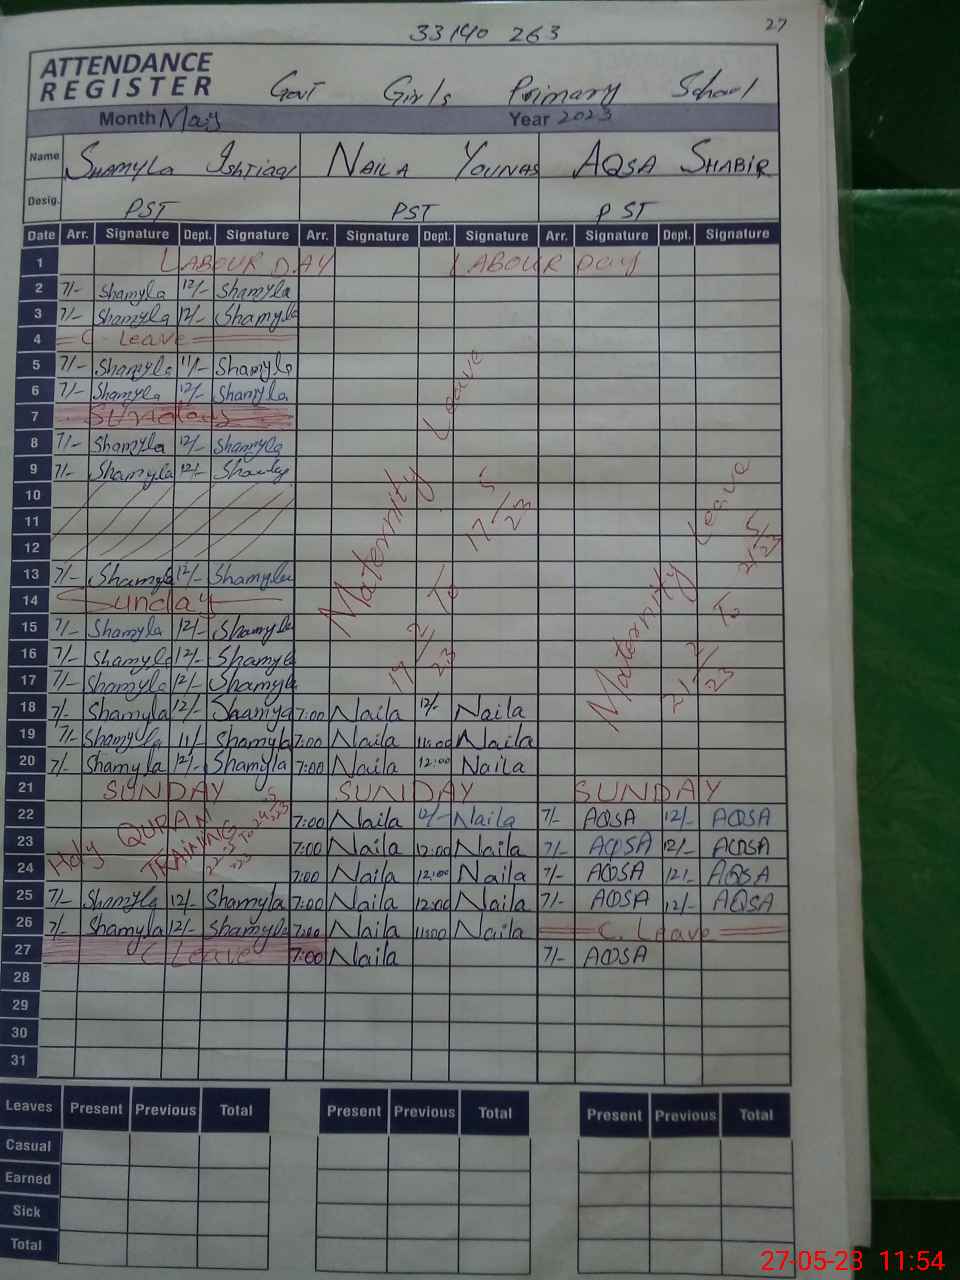 27
33140 263
ATTENDANCE
REGISTER
Govt Girls Primary School
Month May Year 2023
Name Shamyla Ishtiaq NAILA YOUNAS AQSA SHABIR
Desig. PST PST PST
Date Arr. Signature Dept. Signature Arr. Signature Dept. Signature Arr. Signature Dept. Signature
1 LABOUR DAY LABOUR DAY
2 7/- Shamyla 12/- Shamyla
3 7/- Shamyla 12/- Shamyla
4 C. Leave
5 7/- Shamyla 11/- Shamyla
6 7/- Shamyla 12/- Shamyla
7 Sunday
8 7/- Shamyla 12/- Shamyla
9 7/- Shamyla 12/-
10
11
12
13 7/- Shamyla 12/- Shamyla
14 Sunday
15 7/- Shamyla 12/- Shamyla
16 7/- Shamyla 12/- Shamyla
17 7/- Shamyla 12/- Shamyla
Maternity Leave
17/2/23 To 17/5/23
Maternity Leave
21/2/23 To 21/5/23
18 7/- Shamyla 12/- Shamyla 7:00 Naila 12/- Naila
19 7/- Shamyla 11/- Shamyla 7:00 Naila 11:00 Naila
20 7/- Shamyla 12/- Shamyla 7:00 Naila 12:00 Naila
21 SUNDAY SUNDAY SUNDAY
Holy QURAN
TRAINING
22 7:00 Naila 12/- Naila 7/- AQSA 12/- AQSA
23 7:00 Naila 12:00 Naila 7/- AQSA 12/- AQSA
24 7:00 Naila 12:00 Naila 7/- AQSA 12/- AQSA
25 7/- Shamyla 12/- Shamyla 7:00 Naila 12:00 Naila 7/- AQSA 12/- AQSA
26 7/- Shamyla 12/- Shamyla 7:00 Naila 11:00 Naila C. Leave
27 C Leave 7:00 Naila 7/- AQSA
28
29
30
31
Leaves Present Previous Total Present Previous Total Present Previous Total
Casual
Earned
Sick
Total
27-05-23 11:54